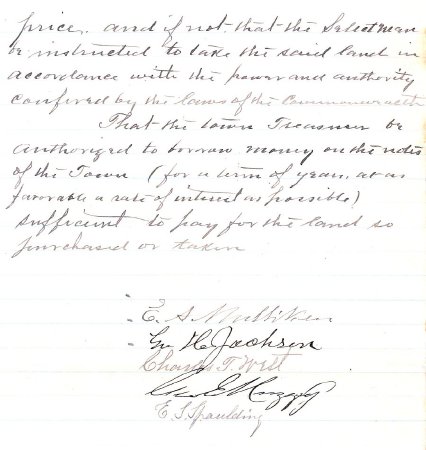 price. and if not, that the Selectmen
be instructed to take the said land in
accordance with the power and authority
confired by the laws of the Commonwealth
That the town Treasurer be
authorized to borrow money on the notes
of the Town (for a term of years, at as
favorable a rate of interest as possible)
sufficient to pay for the land so
purchased or taken
E. S. Mulliken
Geo H Jackson
Charles T. West
Geo E
E. S. Spaulding